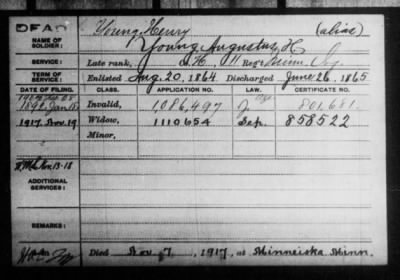 DEAD
NAME OF SOLDIER:
Young, Henry (alias)
Young, Augustus, H
SERVICE:
Late rank, Regt
TERM OF SERVICE:
Enlisted Aug. 20, 1864 Discharged June 26, 1865
DATE OF FILING. CLASS. APPLICATION NO. LAW. CERTIFICATE NO.
Invalid, 1,086,497 801,681.
1917 Nov. 19 Widow, 1110654 858522
Minor,
ADDITIONAL SERVICES:
REMARKS:
Died Nov. 7, 1917, at Minneiska Minn.